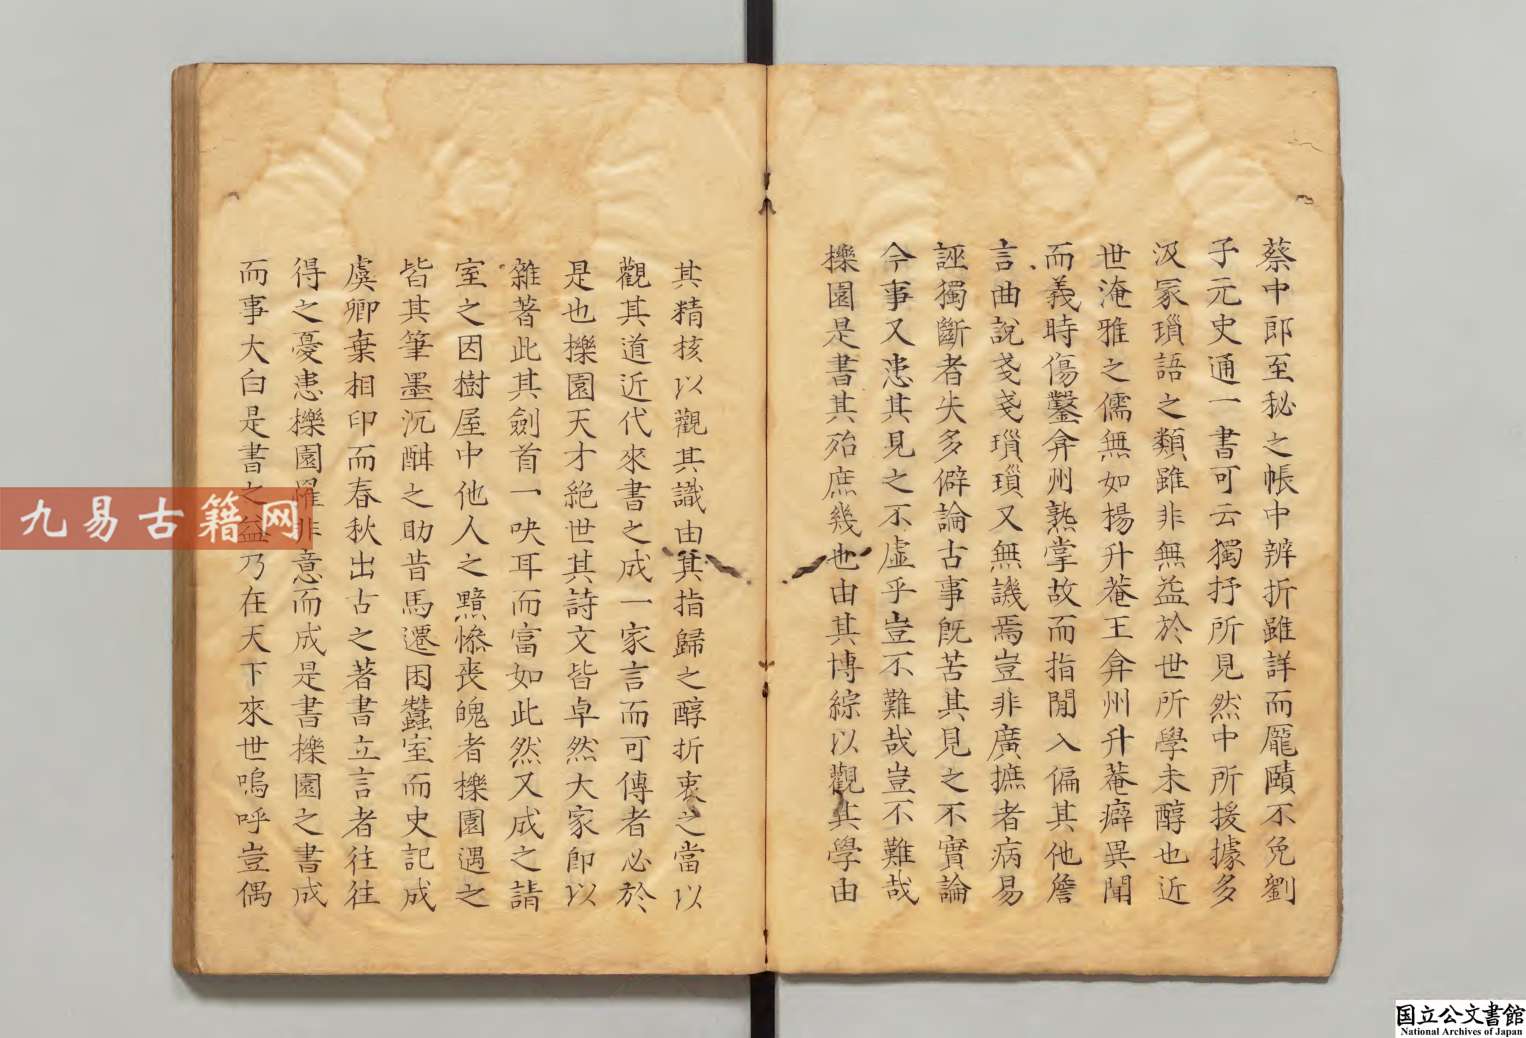 蔡中郎至秘之帳中辨折雖詳而龐賾不免劉
子元史通一書可云獨抒所見然中所援據多
汲冢瑣語之類雖非無益於世所學未醇也近
世淹雅之儒無如楊升菴王弇州升菴癖異聞
而義時傷鑿弇州熟掌故而指閒入偏其他詹
言曲說戔戔瑣瑣又無譏焉豈非廣摭者病易
誣獨斷者失多僻論古事旣苦其見之不實論
今事又患其見之不虛乎豈不難哉豈不難哉
櫟園是書其殆庶幾也由其博綜以觀其學由
其精核以觀其識由其指歸之醇折衷之當以
觀其道近代來書之成一家言而可傳者必於
是也櫟園天才絕世其詩文皆卓然大家卽以
雜著此其劍首一吷耳而富如此然又成之請
室之因樹屋中他人之黯慘喪魄者櫟園遇之
皆其筆墨沉酣之助昔馬遷困蠶室而史記成
虞卿棄相印而春秋出古之著書立言者往往
得之憂患櫟園罹非意而成是書櫟園之書成
而事大白是書之益乃在天下來世嗚呼豈偶
九易古籍网
国立公文書館
National Archives of Japan